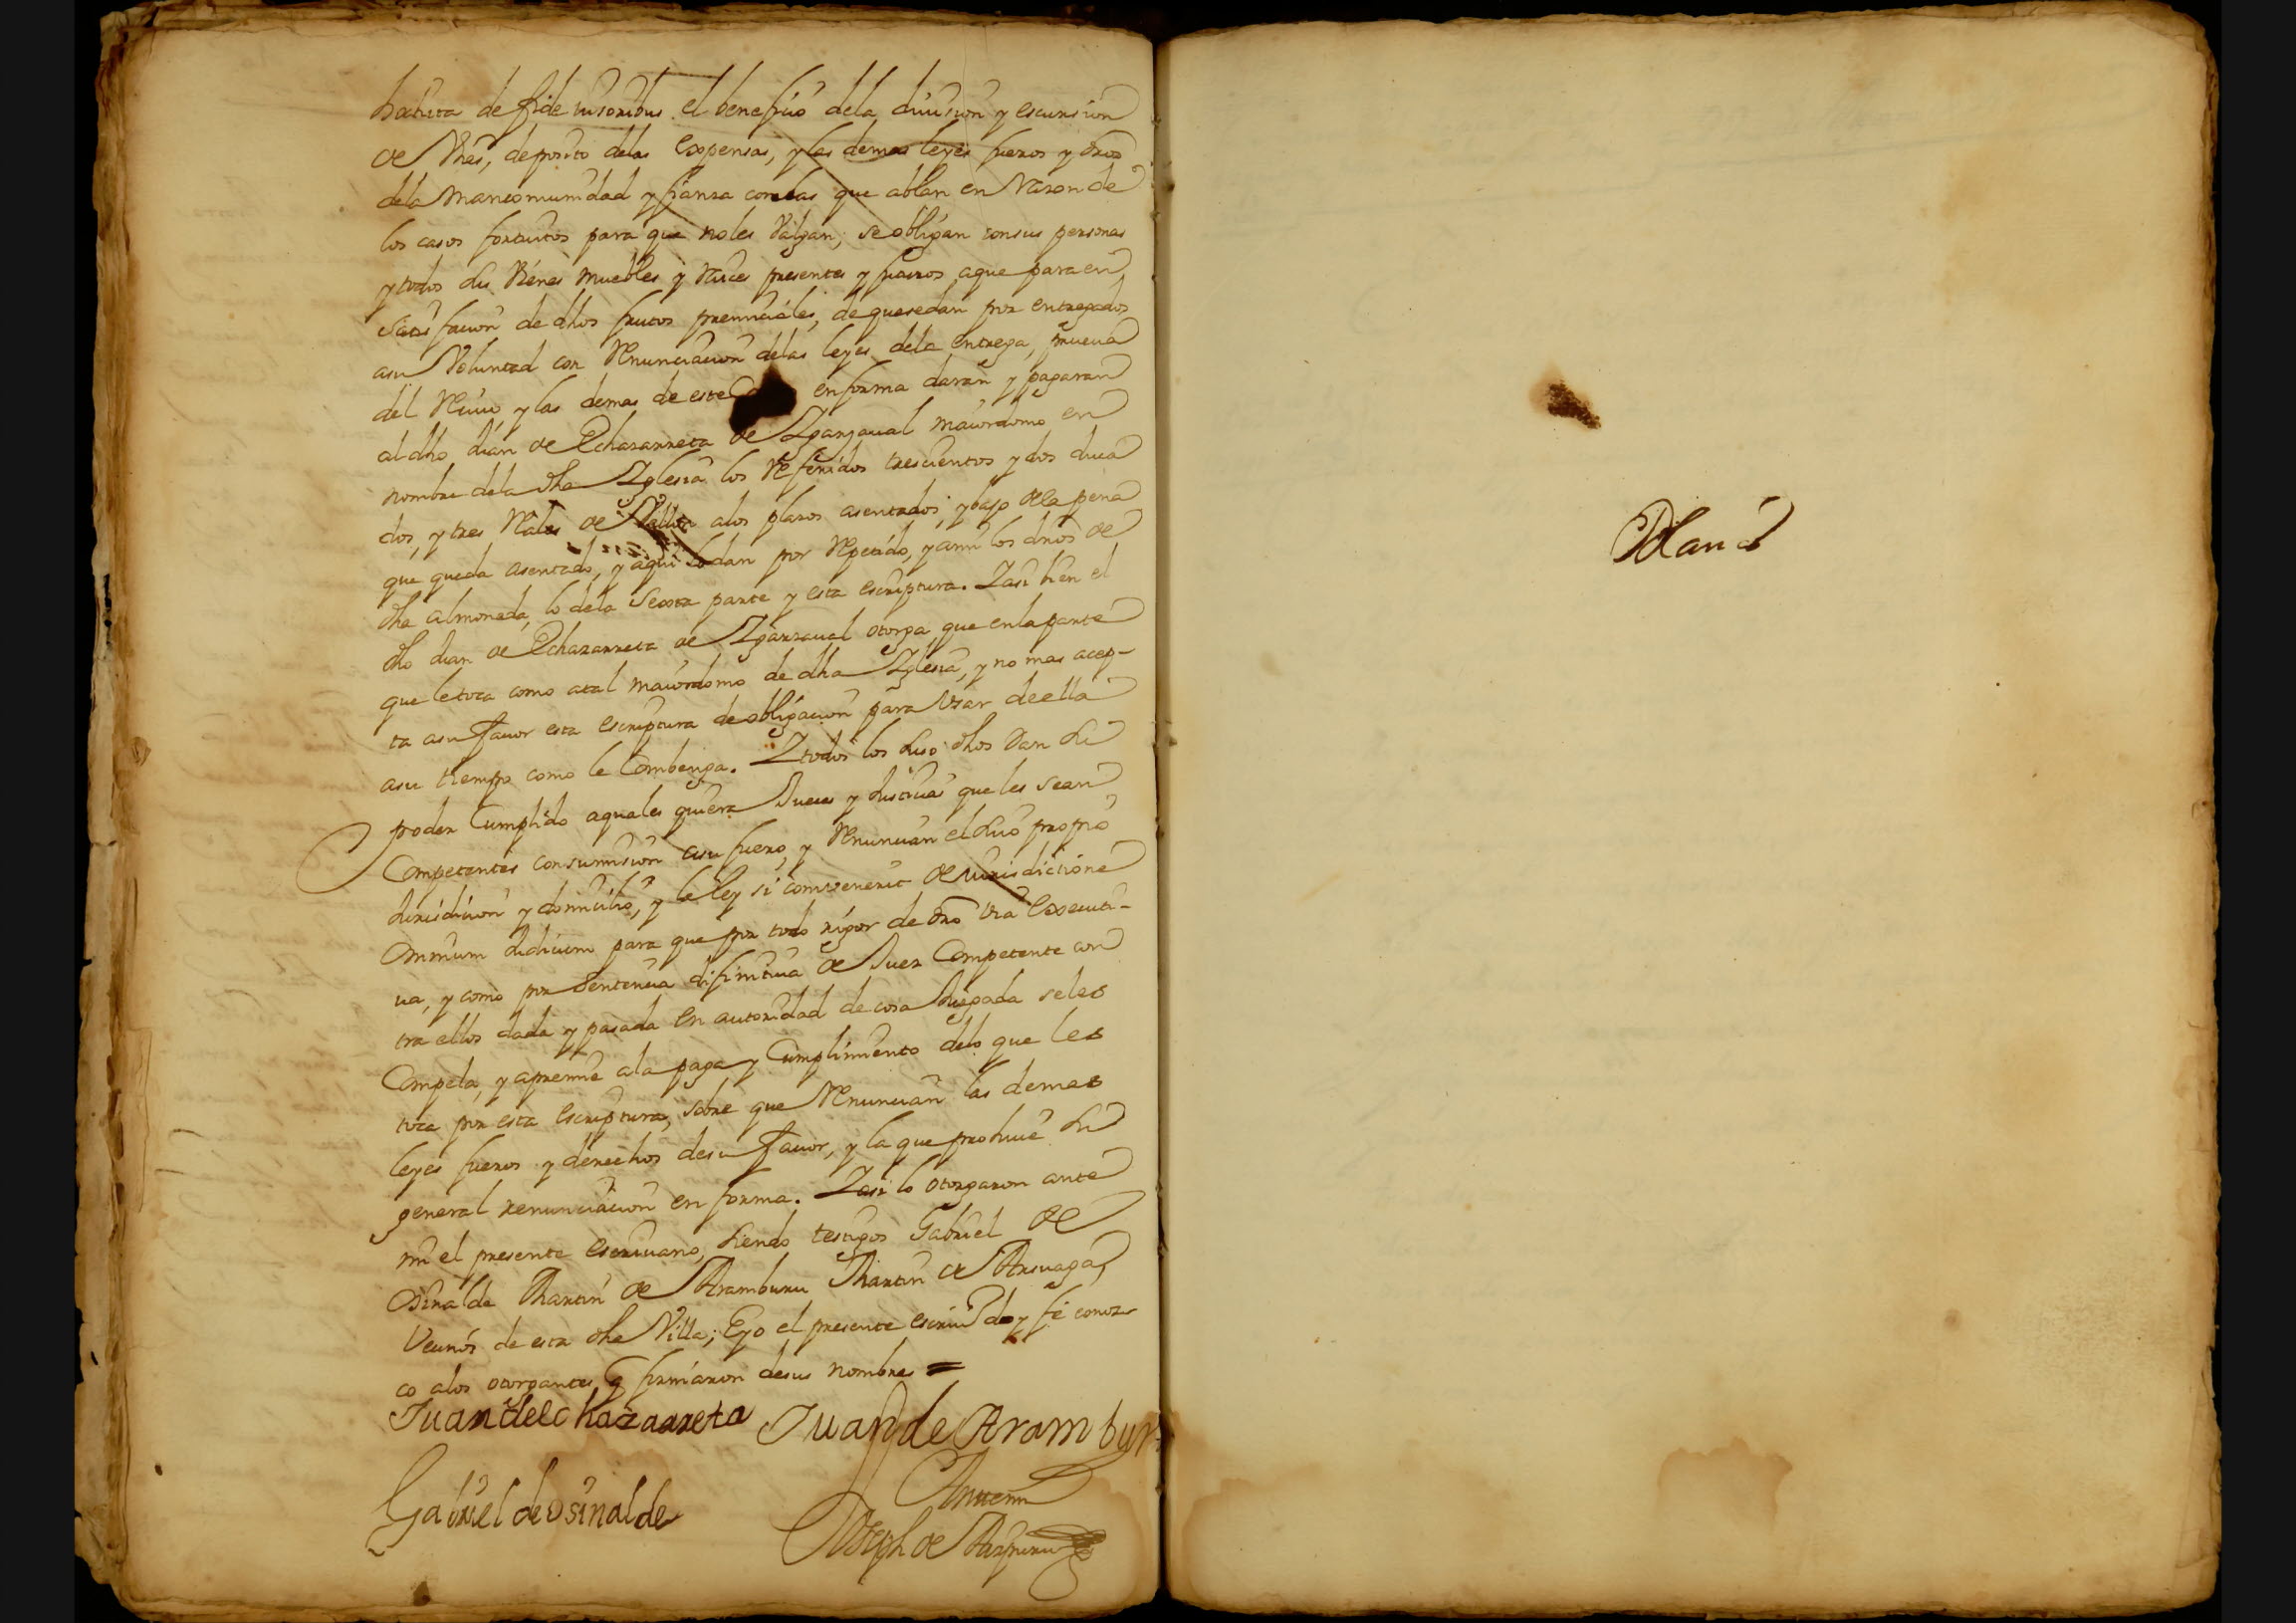 hoc hita de fide iusoribus el benefiçio dela diuision y escursion
de Vnes, deposito delas Expensas, y las demas leyes fueros y dros
dela mancomunidad y fianza con las que ablan en Razon de
los casos fortuitos para que no les Valgan; se obligan con sus personas
y todos sus Vienes muebles y Raices presentes y futuros aque para en
satisfacion de dhos frutos primiciales, de que se dan por entregados
asu Voluntad con Renunciacion delas leyes dela entrega, prueua
del Reciuo y las demas de este en forma daran y pagaran
al dho Juan de Echazarreta de Ygarzaual maiordomo en
nombre dela dha Yglesia los Referidos trescientos y dos duca
dos, y tres Rales de Vellon alos plazos asentados, y bajo dela pena
que queda asentado, y aqui lo dan por Repetido, y ansi los dros de
dha almoneda, lo dela Sexta parte y esta escriptura. Y asi bien el
dho Juan de Echazarreta de Ygarzaual otorga que en la parte
que le toca como atal maiordomo de dha Yglesia, y no mas acep-
ta asu fauor esta escriptura de obligacion para Vsar de ella
asu tiempo como le Combenga. Y todos los suso dhos dan su
poder Cumplido aquales quiera Jueces y Justicias que les sean
Competentes con sumision asu fuero, y Renuncian el suio propio
Jurisdicion y domicilio, y la ley si combenerit de Jurisdictione
Omnium Judicum para que por todo rigor de dro Via Executi-
ua, y como por Sentencia difinitiua de Juez Competente con
tra ellos dada y pasada en autoridad de cosa Juzgada seles
Compela, y apremie ala paga y Cumplimiento delo que les
toca por esta Escriptura, sobre que Renuncian las demas
leyes fueros y derechos desu fauor, y la que prohiue su
general renunciacion en forma. Y asi lo otorgaron ante
mi el presente Escriuano, siendo testigos Gabriel de
Osinalde Martin de Aramburu Martin de Arsuaga,
Vecinos de esta dha Villa; E yo el presente escriuº doy fe conoz
co alos otorgantes q firmaron desus nombres =
Juan de echazarreta Juan de Arambur
Gabriel de Osinalde
Ante mi
Joseph de